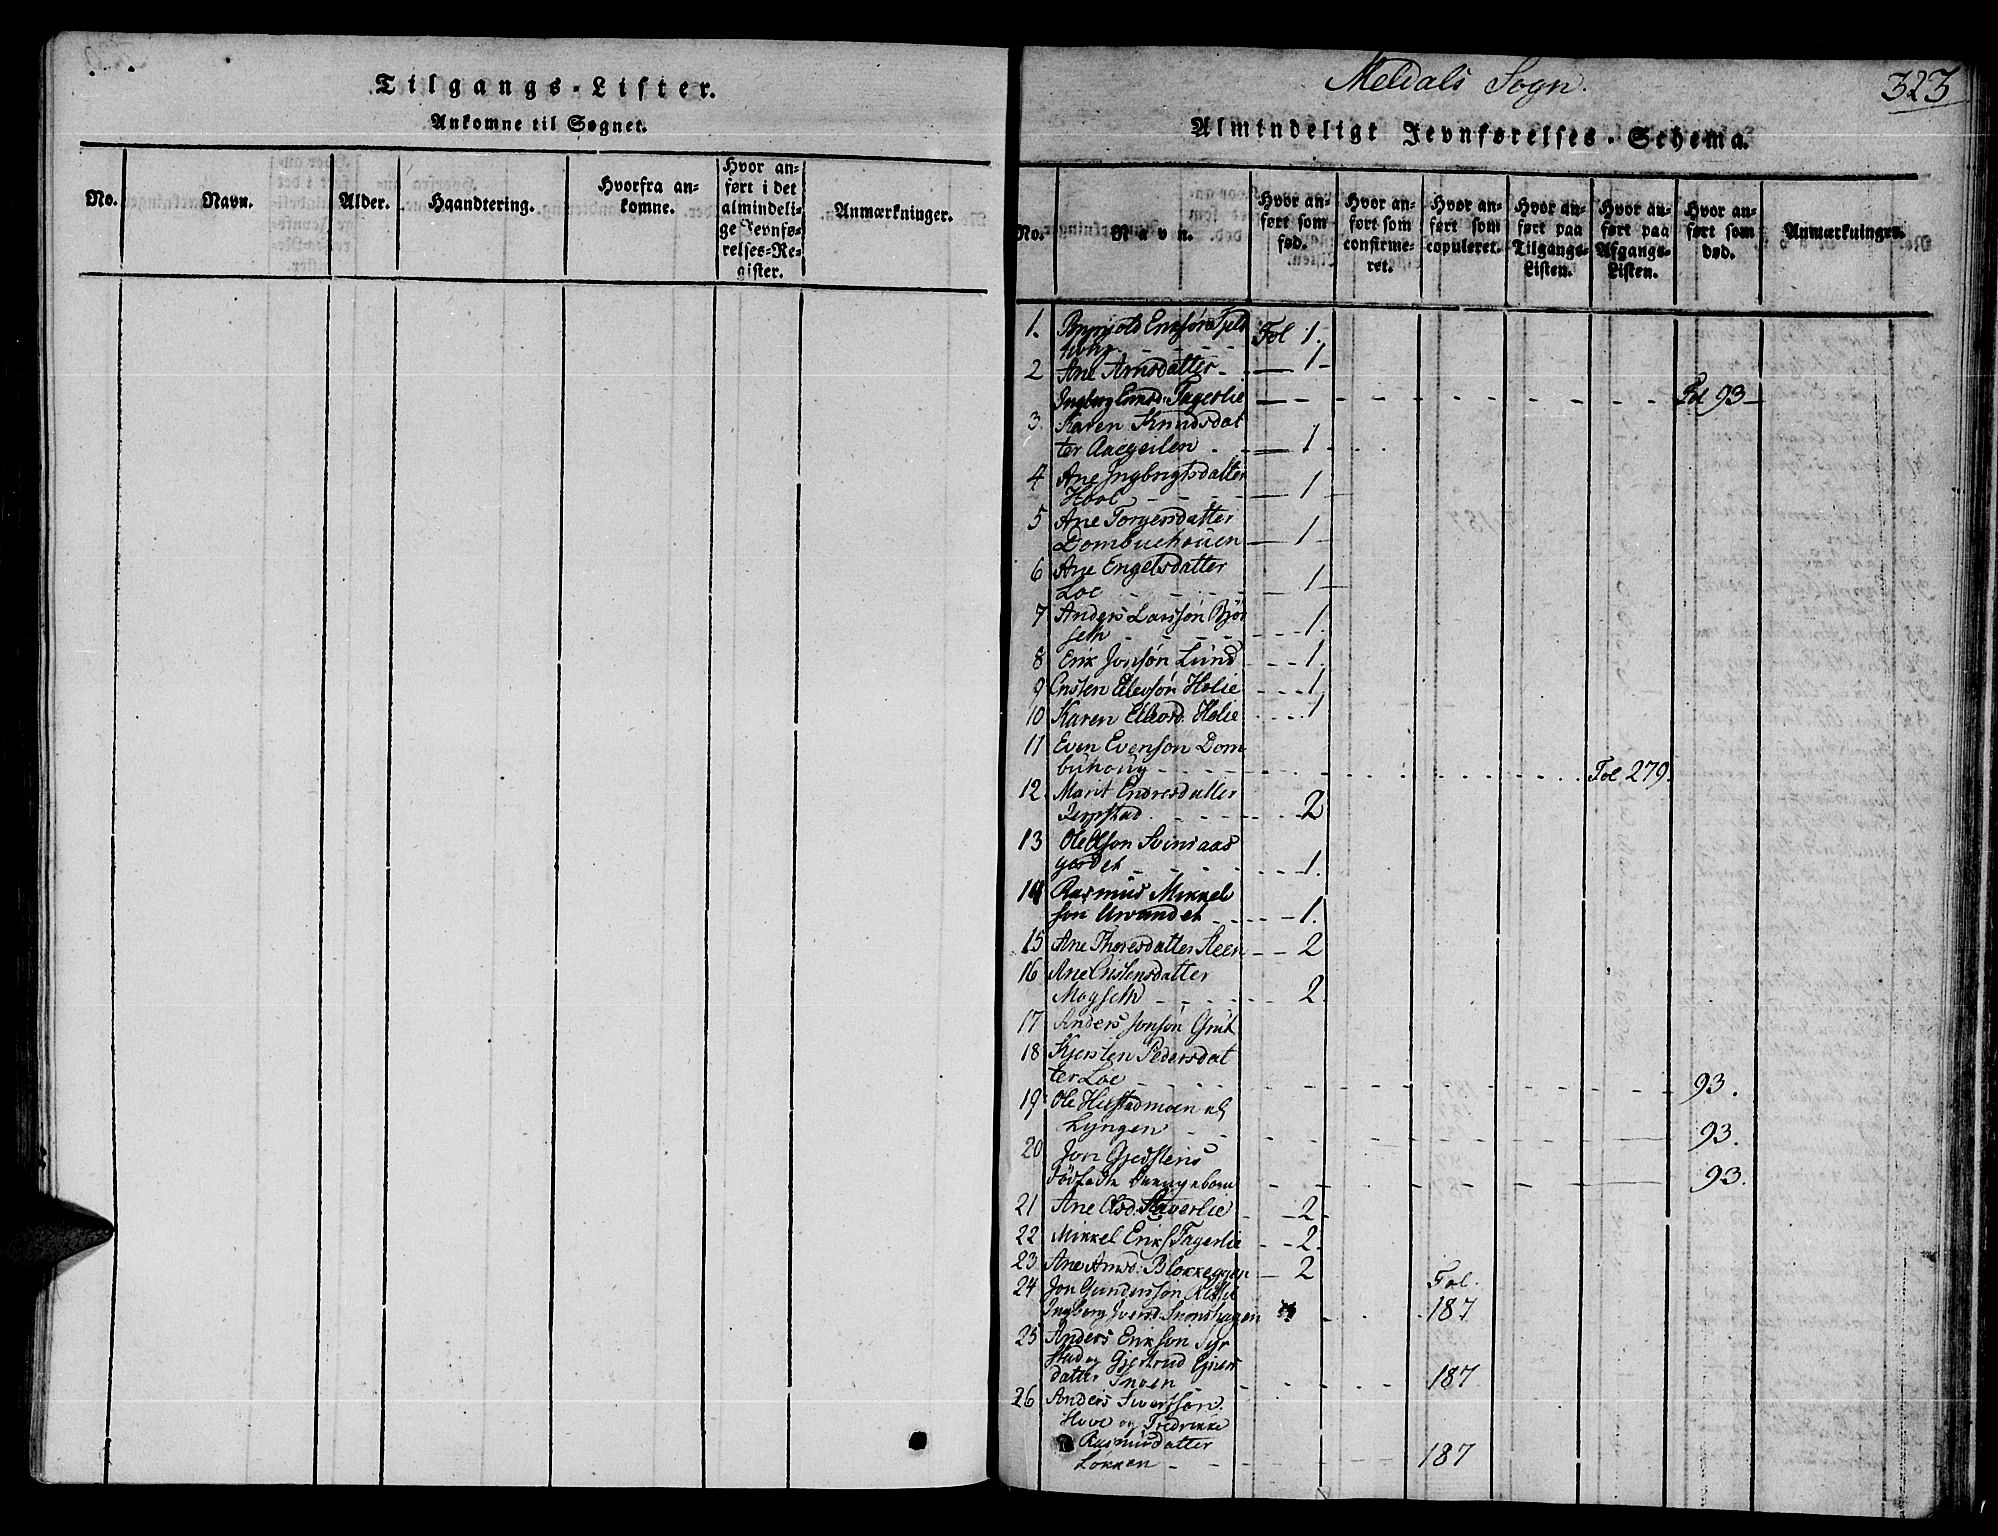 Tilgangs-Lister.
Ankomne til Sognet.
No.
Navn.
Alder.
Haandtering.
Hvorfra an-
komne.
Hvor an-
ført i det
almindeli-
ge Jevnfø-
relses-Re-
gister.
Anmærkninger.
Meldals Sogn.
323
Almindeligt Jevnførelses-Schema.
No.
Navn.
Hvor an-
ført som
fød.
Hvor an-
ført som
confirme-
ret.
Hvor an-
ført som
copuleret.
Hvor an-
ført paa
Tilgangs-
Listen.
Hvor an-
ført paa
Afgangs-
Listen.
Hvor an-
ført som
død.
Anmærkninger.
1. Fol 1.
2 Ane Arnsdatter 1
Ingborg Fagerlie Fol 93
3. Karen Knudsdat
ter 1
4 Ane Ingbrigtsdatter
Hool 1
5 Ane Torgersdatter
Dombuehouen 1
6 Ane Engelsdatter
Loe 1
7 Anders Larssøn Bjør
seth 1.
8 Erik Jonsøn Lund 1.
9 Cristen Ellevsøn Holie 1
10 Karen Ellevsd. Holie 1
11 Even Evenson Dom
buhoug Fol 279.
12. Marit Endresdatter
2
13 Ole Olson Sviniaas
gierdet 1.
14 Rasmus Mikkel
son 1.
15 Ane Thoresdatter Steen 2
16 Ane Cristensdatter
Mogseth 2.
17 Anders Jonsøn Grut
18 Kjersten Pedersdat
ter Loe 93.
19 Ole
Lyngen 93.
20 Jon
93.
21 Ane Olsd. 2
22 Mikkel Eriks Fagerlie 2.
23 Ane Arnsd. Blokkeggen 2
24 Jon Gunderssøn Fol.
Ingborg Iversd. 187
25 Anders Erikson Syr
stad og Gjertrud
datter Snoen 187
26 Anders Sivertsøn
Hove og Fredrikke
Rasmusdatter
Løkken 187